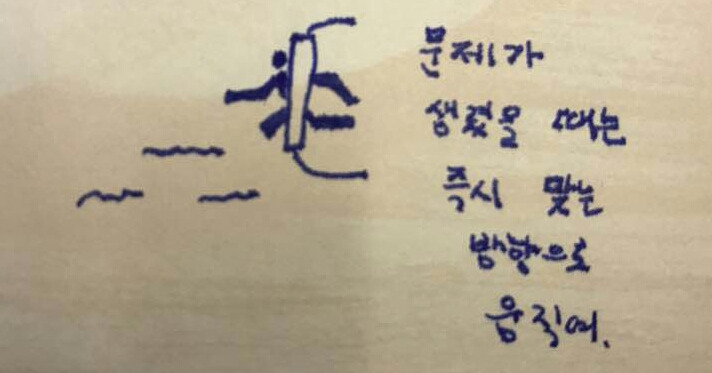 문제가
생겼을 때는
즉시 맞는
방향으로
움직여.